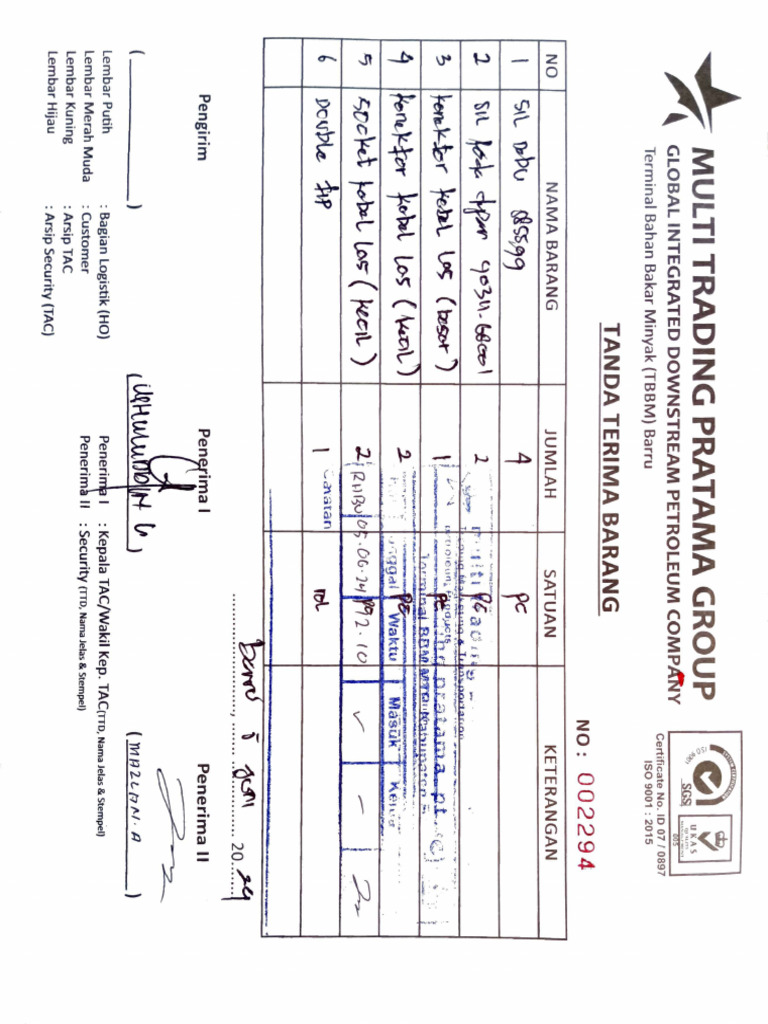 MULTI TRADING PRATAMA GROUP
GLOBAL INTEGRATED DOWNSTREAM PETROLEUM COMPANY
Terminal Bahan Bakar Minyak (TBBM) Barru
ISO 9001
SGS
UKAS
QUALITY MANAGEMENT
005
Certificate No. ID 07 / 0897
ISO 9001 : 2015
TANDA TERIMA BARANG
NO : 002294
NO NAMA BARANG JUMLAH SATUAN KETERANGAN
1 SIL 4 pc
2 SIL 90311-68001 2 pc
3 konektor kabel Las (besar) 1 pc
4 konektor kabel Las (kecil) 2 pc
5 socket kabel Las (kecil) 2 pc
6 Double TIP 1
pratama pt.
Tanggal Waktu Masuk Keluar
RABU 05.06.24 12.10 ✓ -
Catatan
Barru, 5 Juni 2024
Pengirim Penerima I Penerima II
( ) ( ) (MAZLAN.A)
Lembar Putih : Bagian Logistik (HO)
Lembar Merah Muda : Customer
Lembar Kuning : Arsip TAC
Lembar Hijau : Arsip Security (TAC)
Penerima I : Kepala TAC/Wakil Kep. TAC (TTD, Nama Jelas & Stempel)
Penerima II : Security (TTD, Nama Jelas & Stempel)